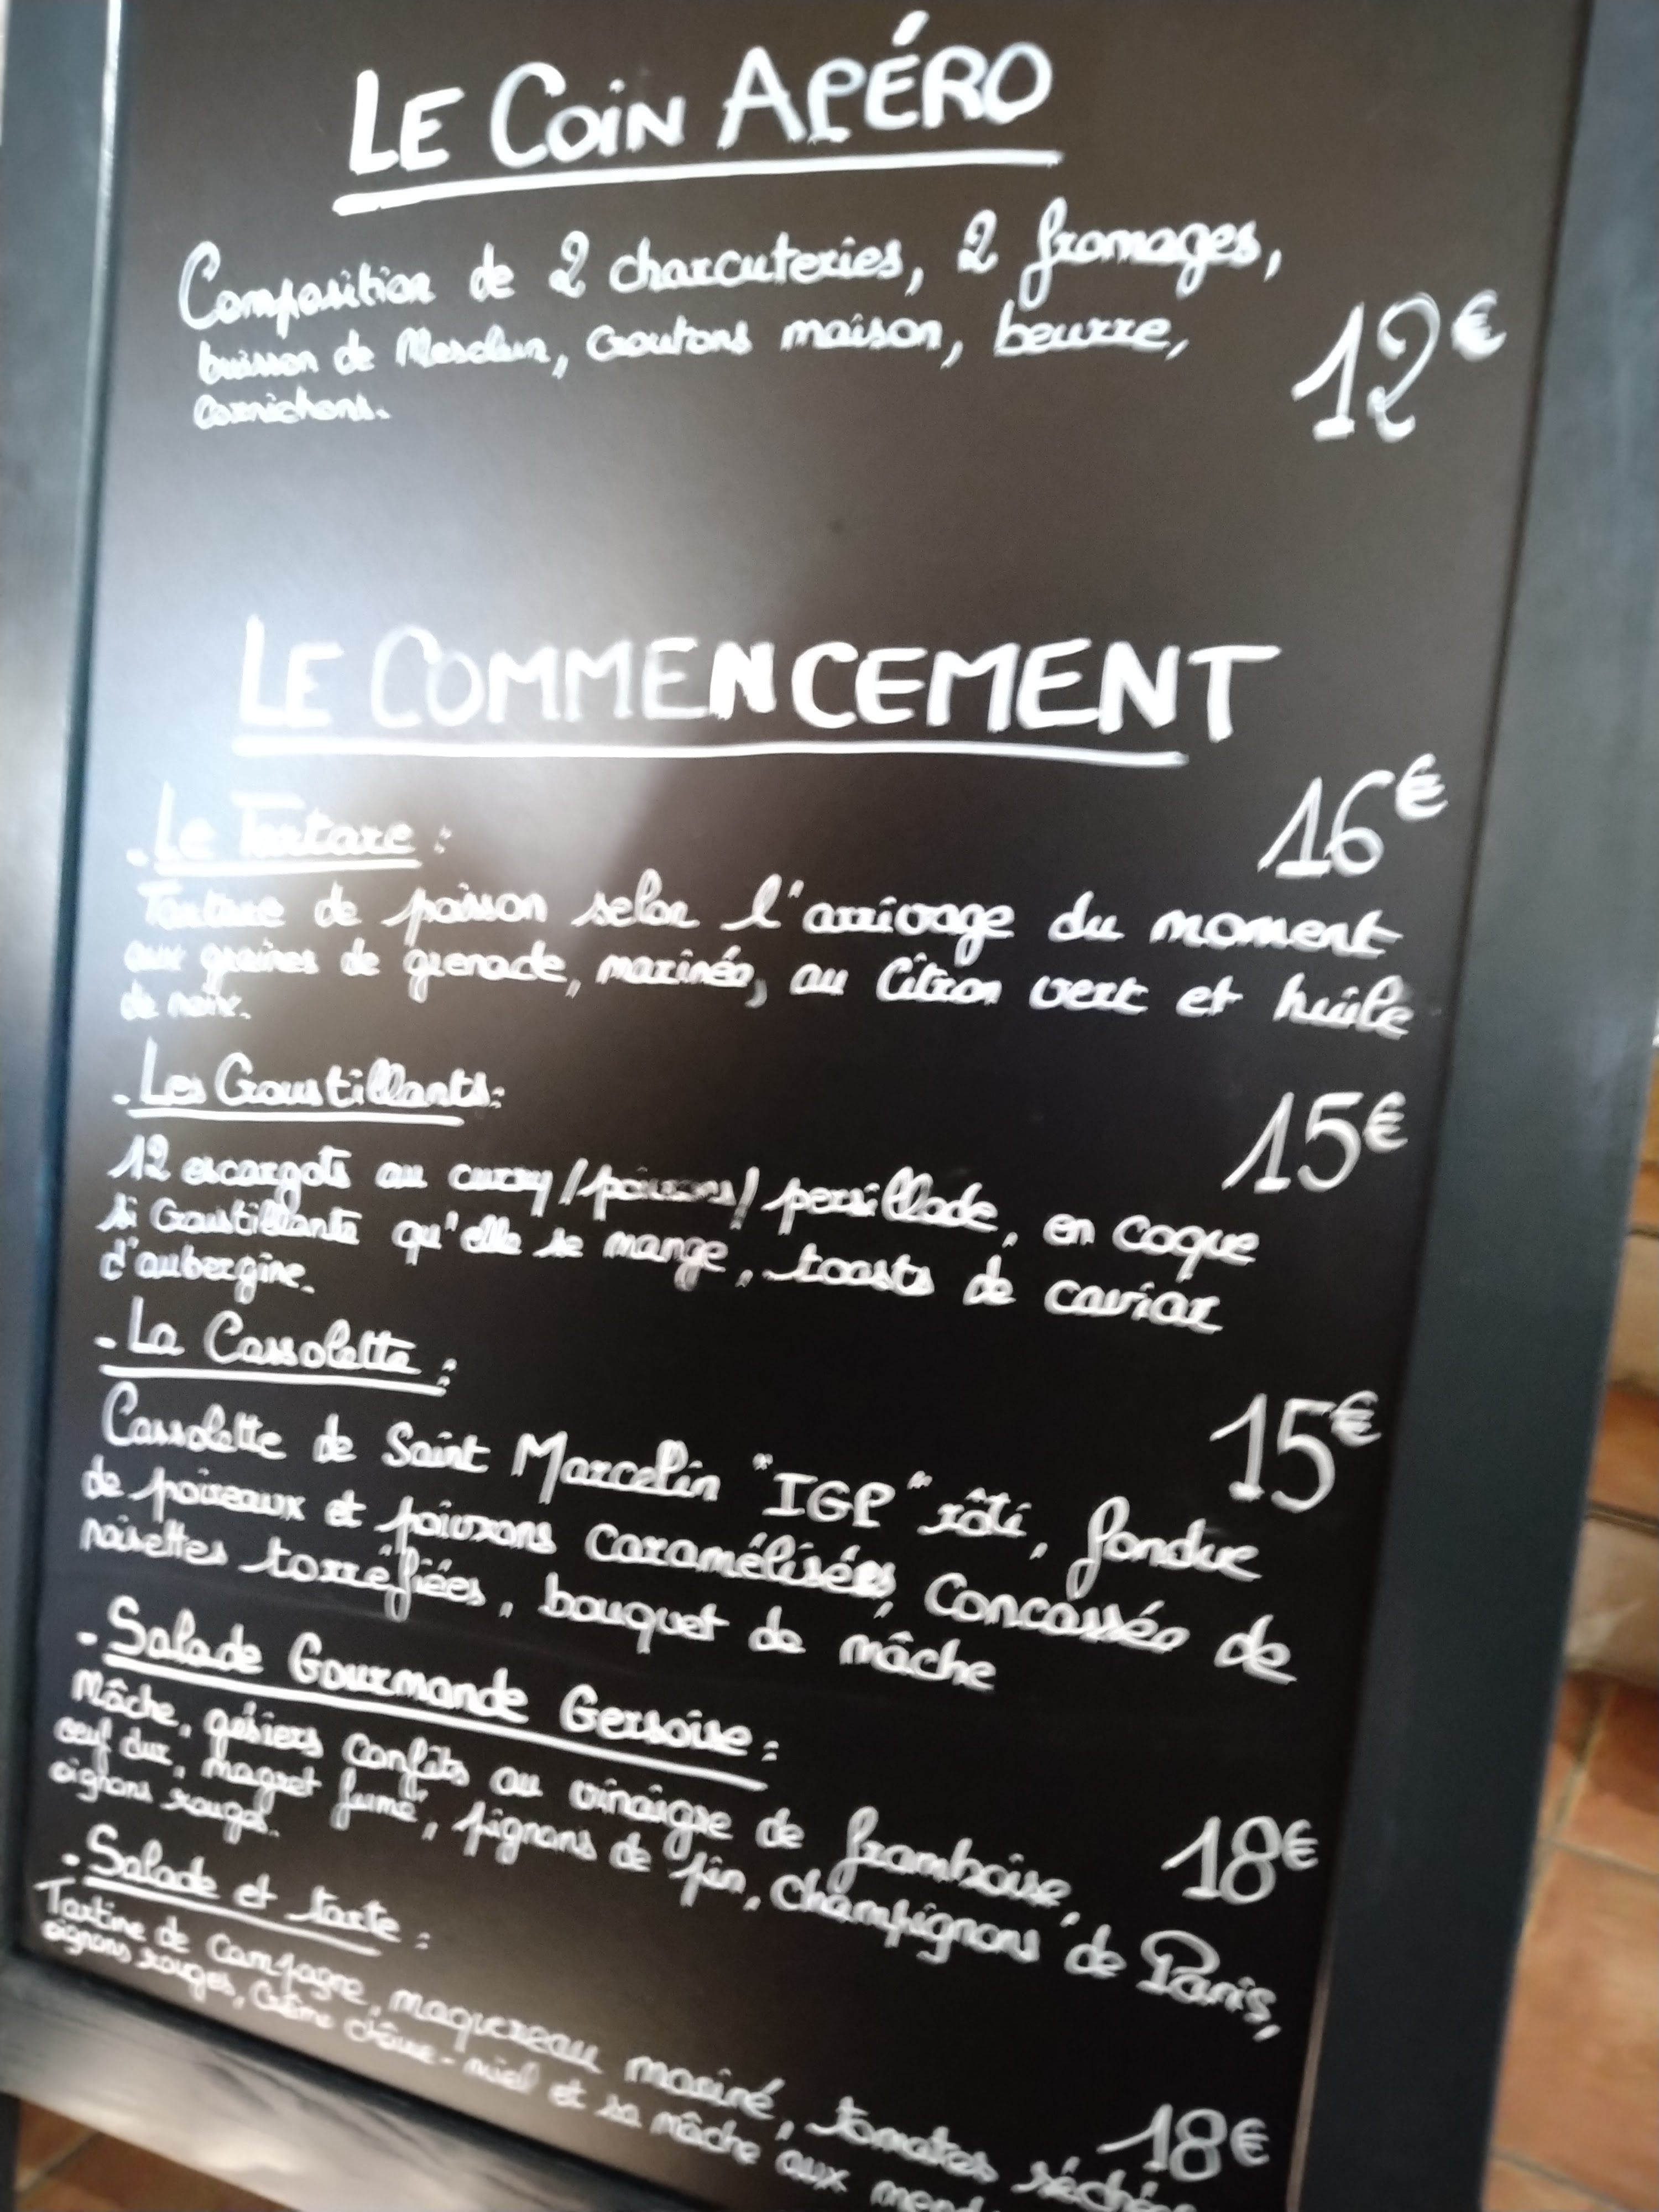 LE COIN APÉRO
Composition de 2 charcuteries, 2 fromages,
buisson de Mesclun, Croutons maison, beurre,
Cornichons.
12€
LE COMMENCEMENT
- Le Tartare :
16€
Tartare de poisson selon l'arrivage du moment
aux graines de grenade, marinés, au Citron vert et huile
de noix.
- Les Croustillants :
15€
12 escargots au curry/poivrons/persillade, en coque
si Croustillante qu'elle se mange, toasts de caviar
d'aubergine.
- La Cassolette :
15€
Cassolette de Saint Marcelin "IGP" rôti, fondue
de poireaux et poivrons caramélisés, Concassés de
noisettes torréfiées, bouquet de mâche
- Salade Gourmande Gersoise :
Mâche, gésiers confits au vinaigre de framboise,
18€
oeuf dur, magret fumé, pignons de pin, Champignons de Paris,
oignons rouges.
- Salade et tarte :
Tartine de Campagne, maquereau mariné, tomates
18€
oignons rouges, Crème chèvre-miel et sa mâche aux